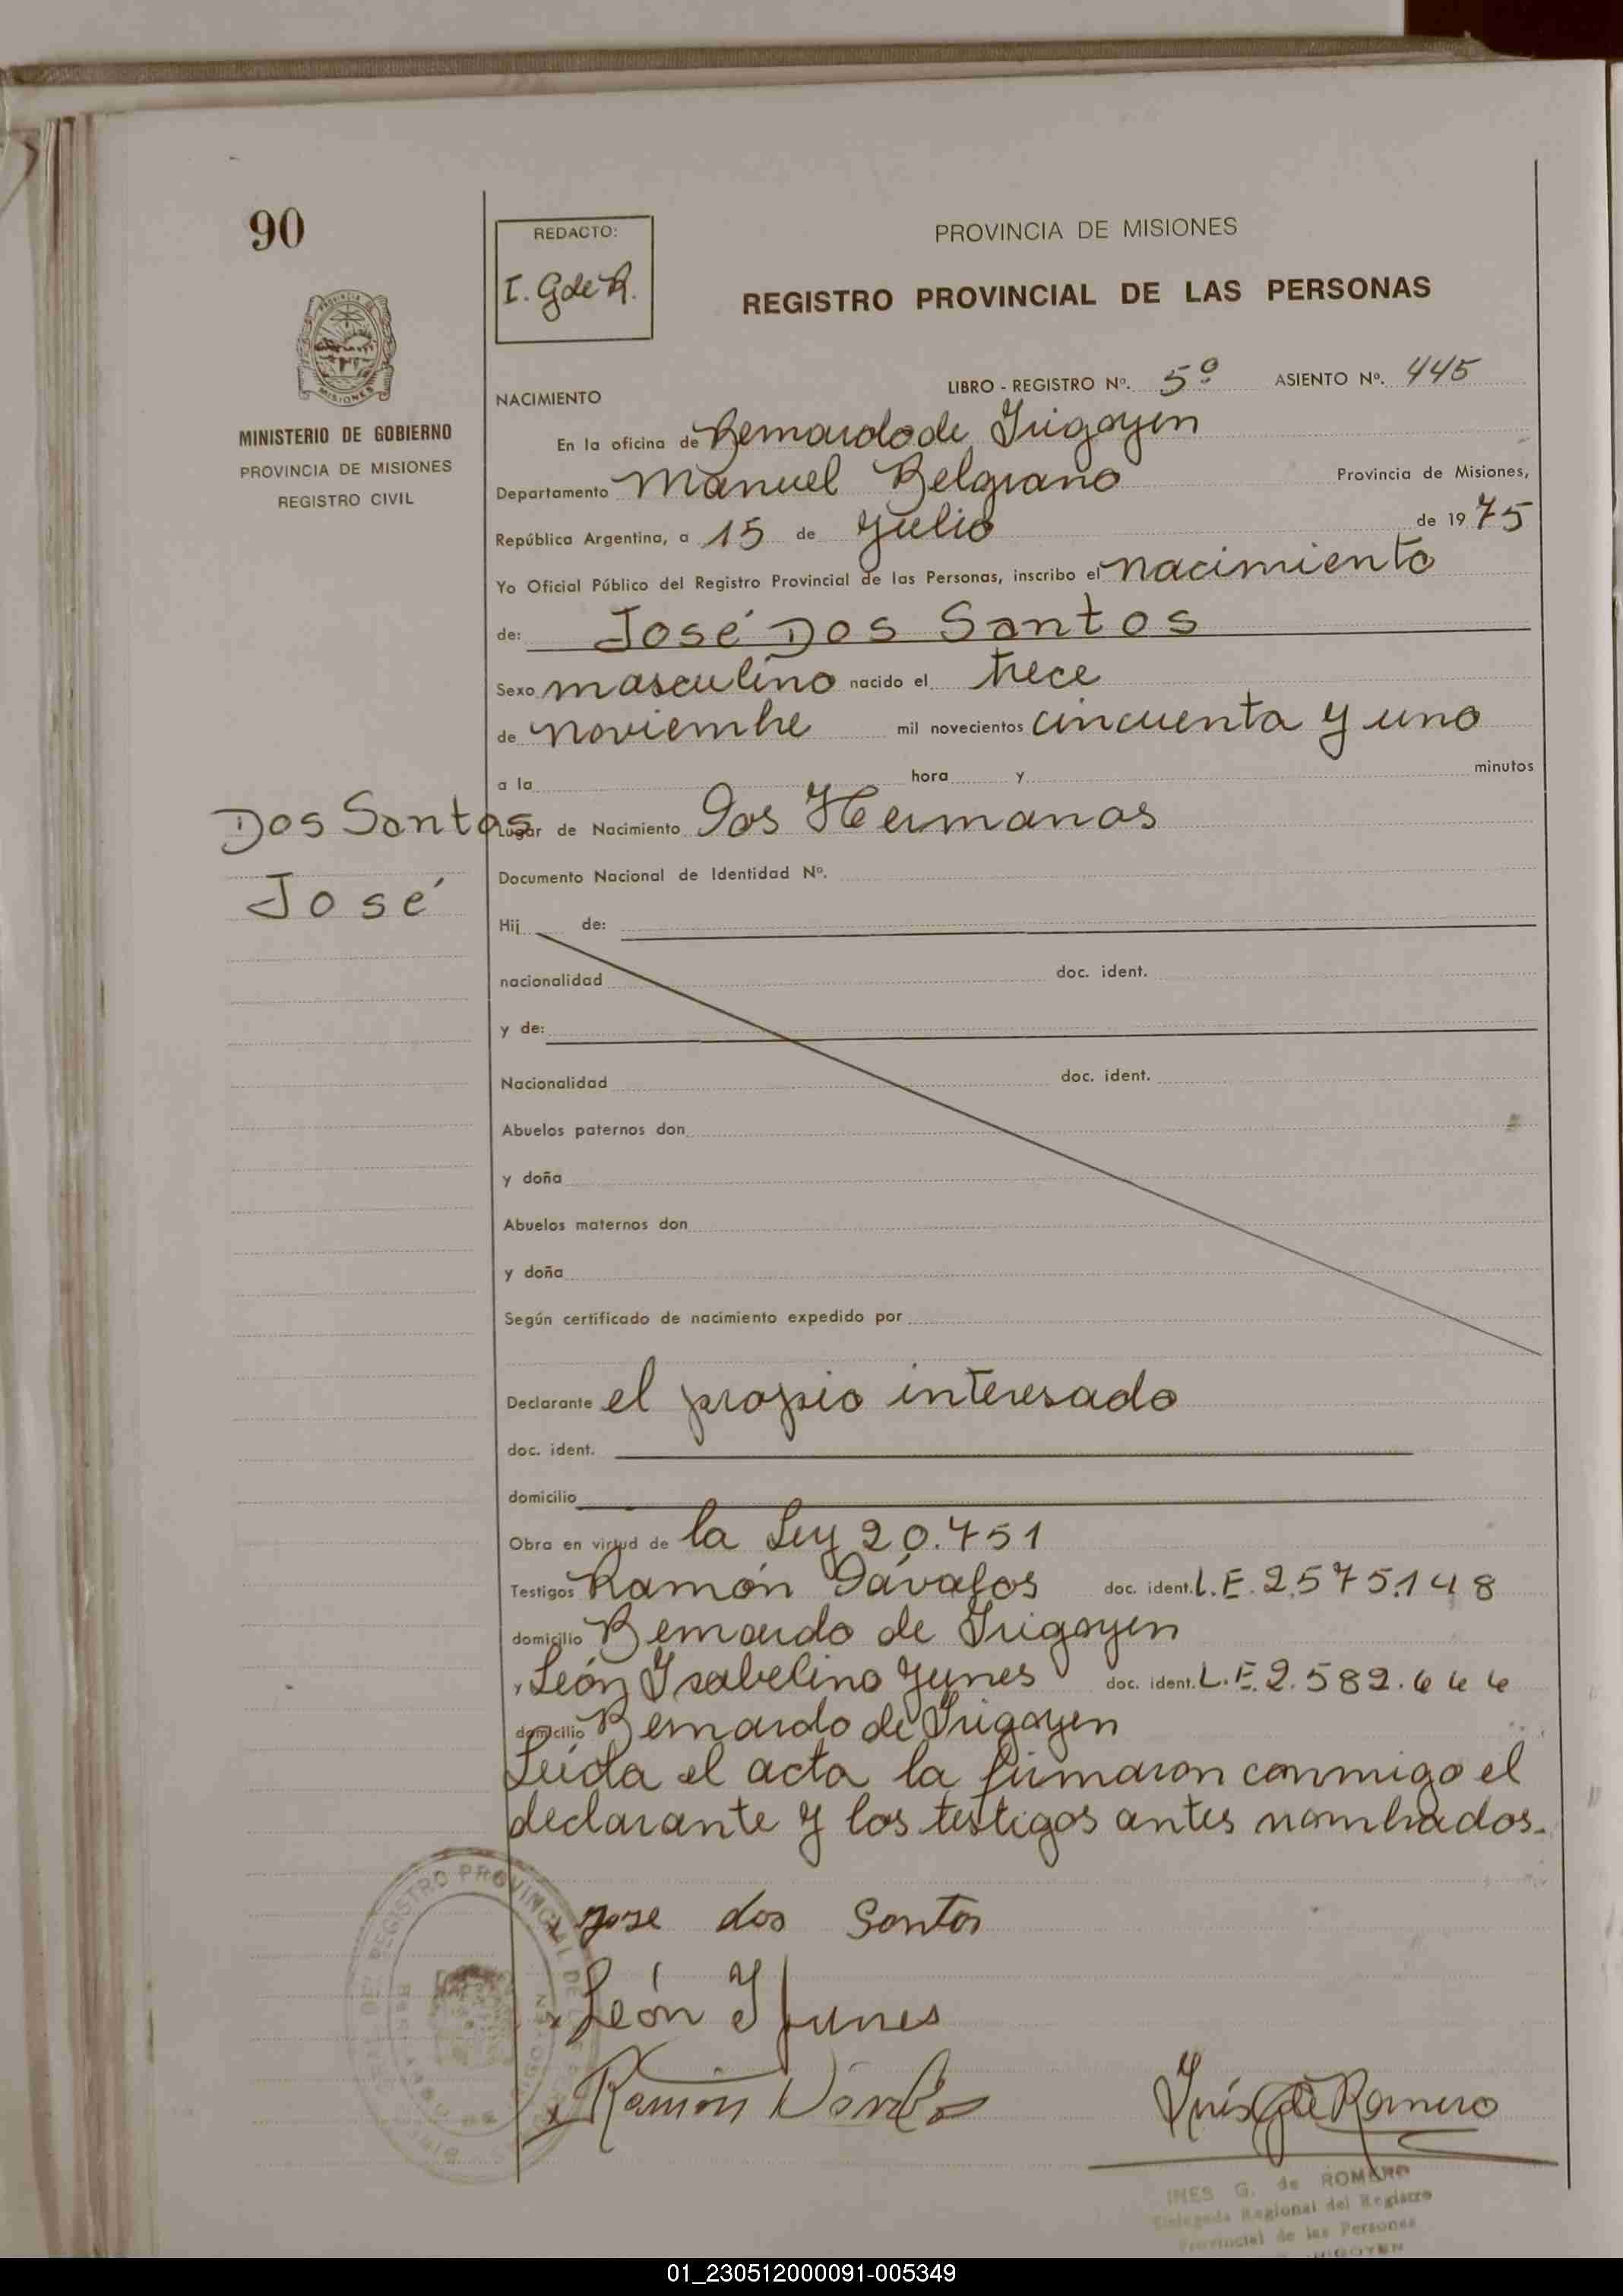 90
REDACTO:
I. G de R.
PROVINCIA DE MISIONES
REGISTRO PROVINCIAL DE LAS PERSONAS
MISIONES
MINISTERIO DE GOBIERNO
PROVINCIA DE MISIONES
REGISTRO CIVIL
LIBRO - REGISTRO Nº. 5º ASIENTO Nº. 445
NACIMIENTO
En la oficina de Bernardo de Irigoyen
Departamento Manuel Belgrano Provincia de Misiones,
República Argentina, a 15 de Julio de 1975
Yo Oficial Público del Registro Provincial de las Personas, inscribo el nacimiento
de: José Dos Santos
Sexo masculino nacido el trece
de noviembre mil novecientos cincuenta y uno
a la hora y minutos
Dos Santos
José
Lugar de Nacimiento Dos Hermanas
Documento Nacional de Identidad Nº.
Hij de:
nacionalidad doc. ident.
y de:
Nacionalidad doc. ident.
Abuelos paternos don
y doña
Abuelos maternos don
y doña
Según certificado de nacimiento expedido por
Declarante el propio interesado
doc. ident.
domicilio
Obra en virtud de la Ley 20.751
Testigos Ramón Dávalos doc. ident. L.E. 2.575.148
domicilio Bernardo de Irigoyen
y León Isabelino Yunes doc. ident. L.E. 2.582.666
domicilio Bernardo de Irigoyen
Leída el acta la firmaron conmigo el
declarante y los testigos antes nombrados.
x jose dos Santos
x León I Yunes
x Ramón Dávalos
Inés G de Romero
INES G. de ROMERO
Delegada Regional del Registro
Provincial de las Personas
IRIGOYEN
REGISTRO PROVINCIAL DE
01_230512000091-005349